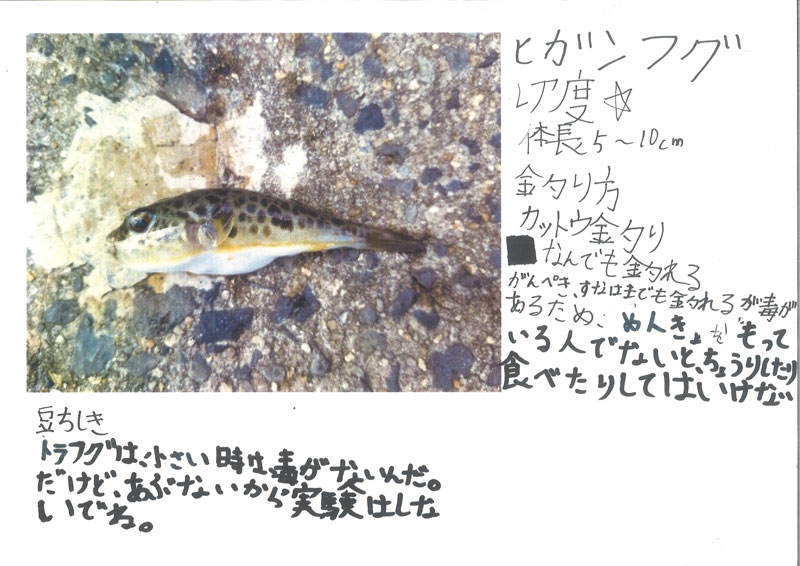 ヒガンフグ
レア度☆
体長5～10cm
釣り方
カットウ釣り
なんでも釣れる
がんぺき、すなはまでも釣れるが毒が
あるため、めんきょを、もって
いる人でないと、ちょうりしたり
食べたりしてはいけない
豆ちしき
トラフグは、小さい時は、毒がないんだ。
だけど、あぶないから実験はしな
いでね。